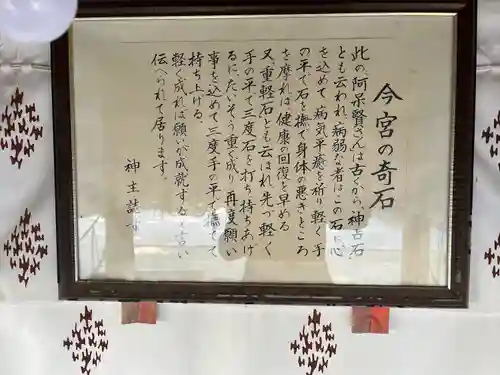 今宮の奇石
此の、阿呆賢さんは古くから、神占石、
とも云われ、病弱な者はこの石に心
を込めて、病気平癒を祈り、軽く手
の平で石を撫で身体の悪きところ
を摩れば、健康の回復を早める
又、重軽石とも云はれ、先づ軽く
手の平で三度石を打ち持ちあげ
るに、たいそう重く成り、再度願い
事を込めて三度手の平で撫でて
持ち上ける、
軽く成れば願いが成就すると言い
伝へられて居ります。
神主誌す